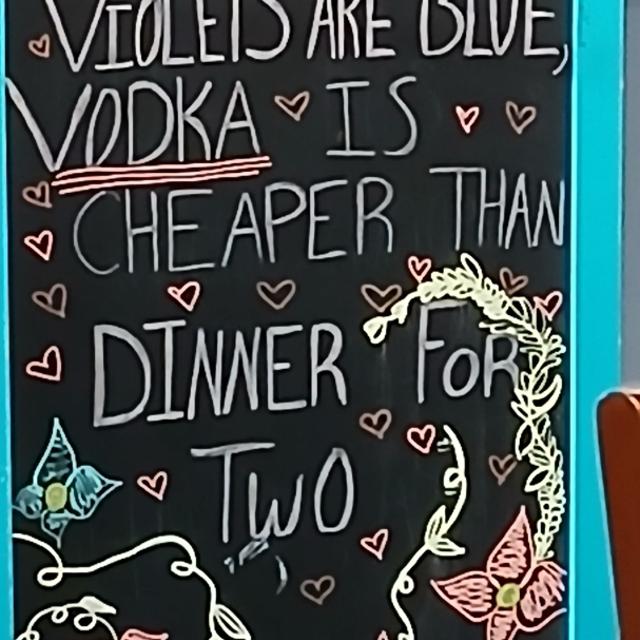 VIOLETS ARE BLUE,
VODKA IS
CHEAPER THAN
DINNER FOR
TWO